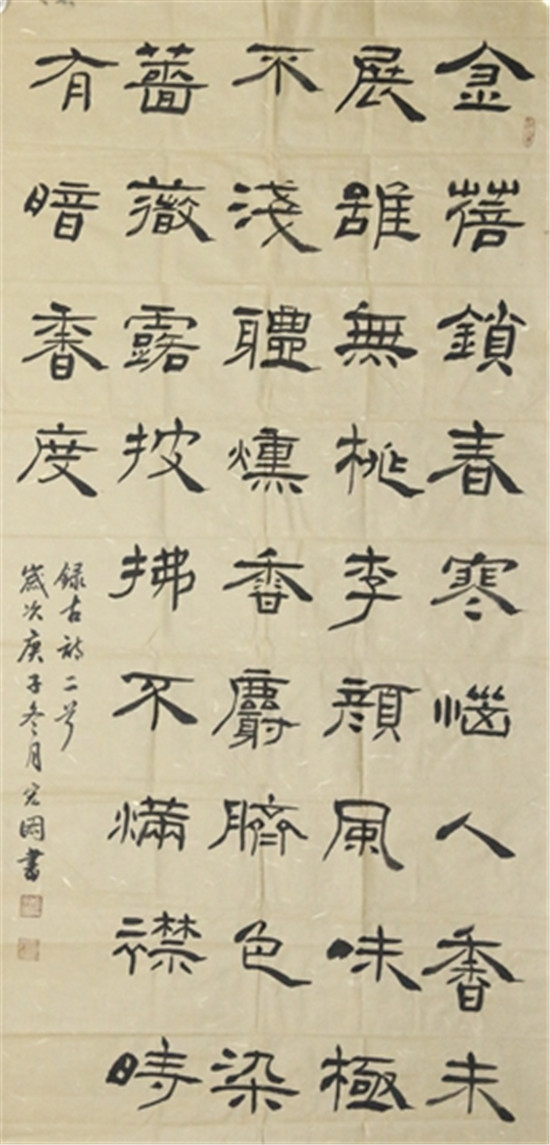 金蓓鎖春寒惱人香未
展雖無桃李顏風味極
不淺軆燻香麝臍色染
薔薇露披拂不滿襟時
有暗香度
錄古詩二首
歲次庚子冬月宏國書